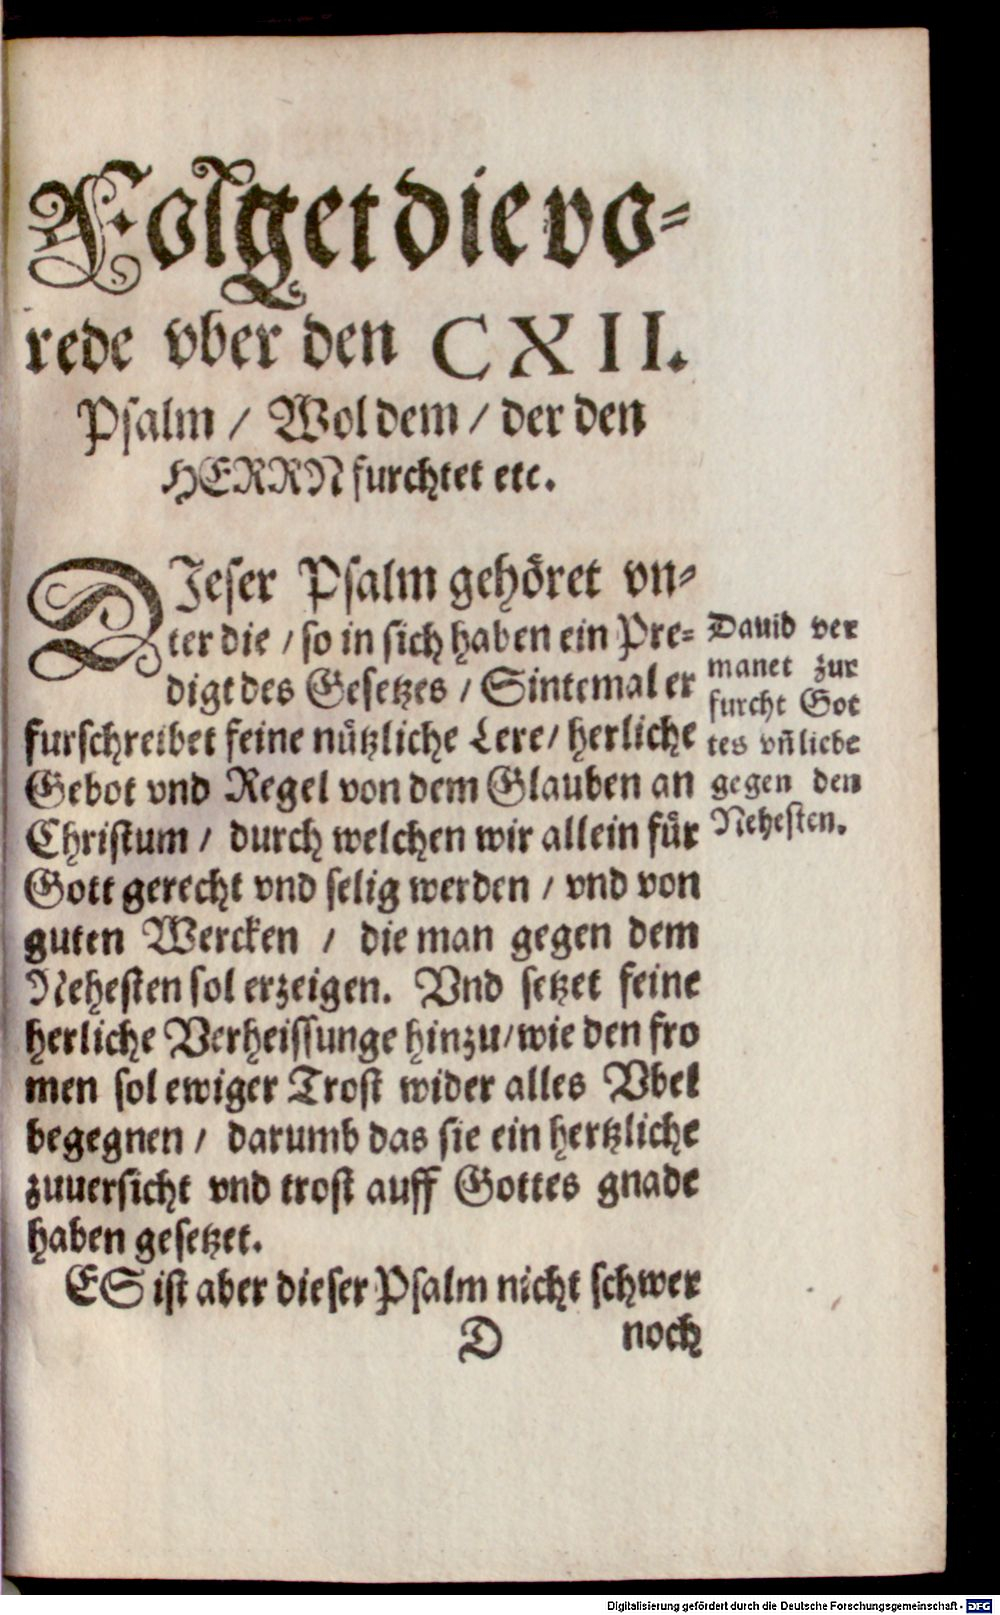 Folget die vo-
rede vber den CXII.
Psalm / Wol dem / der den
HERRN furchtet etc.
DJeser Psalm gehöret vn-
ter die / so in sich haben ein Pre-
digt des Gesetzes / Sintemal er
furschreibet feine nützliche Lere / herliche
Gebot vnd Regel von dem Glauben an
Christum / durch welchen wir allein für
Gott gerecht vnd selig werden / vnd von
guten Wercken / die man gegen dem
Nehesten sol erzeigen. Vnd setzet feine
herliche Verheissunge hinzu / wie den fro
men sol ewiger Trost wider alles Vbel
begegnen / darumb das sie ein hertzliche
zuuersicht vnd trost auff Gottes gnade
haben gesetzet.
ES ist aber dieser Psalm nicht schwer
D noch
Dauid ver
manet zur
furcht Got
tes vñ liebe
gegen den
Nehesten.
Digitalisierung gefördert durch die Deutsche Forschungsgemeinschaft - DFG